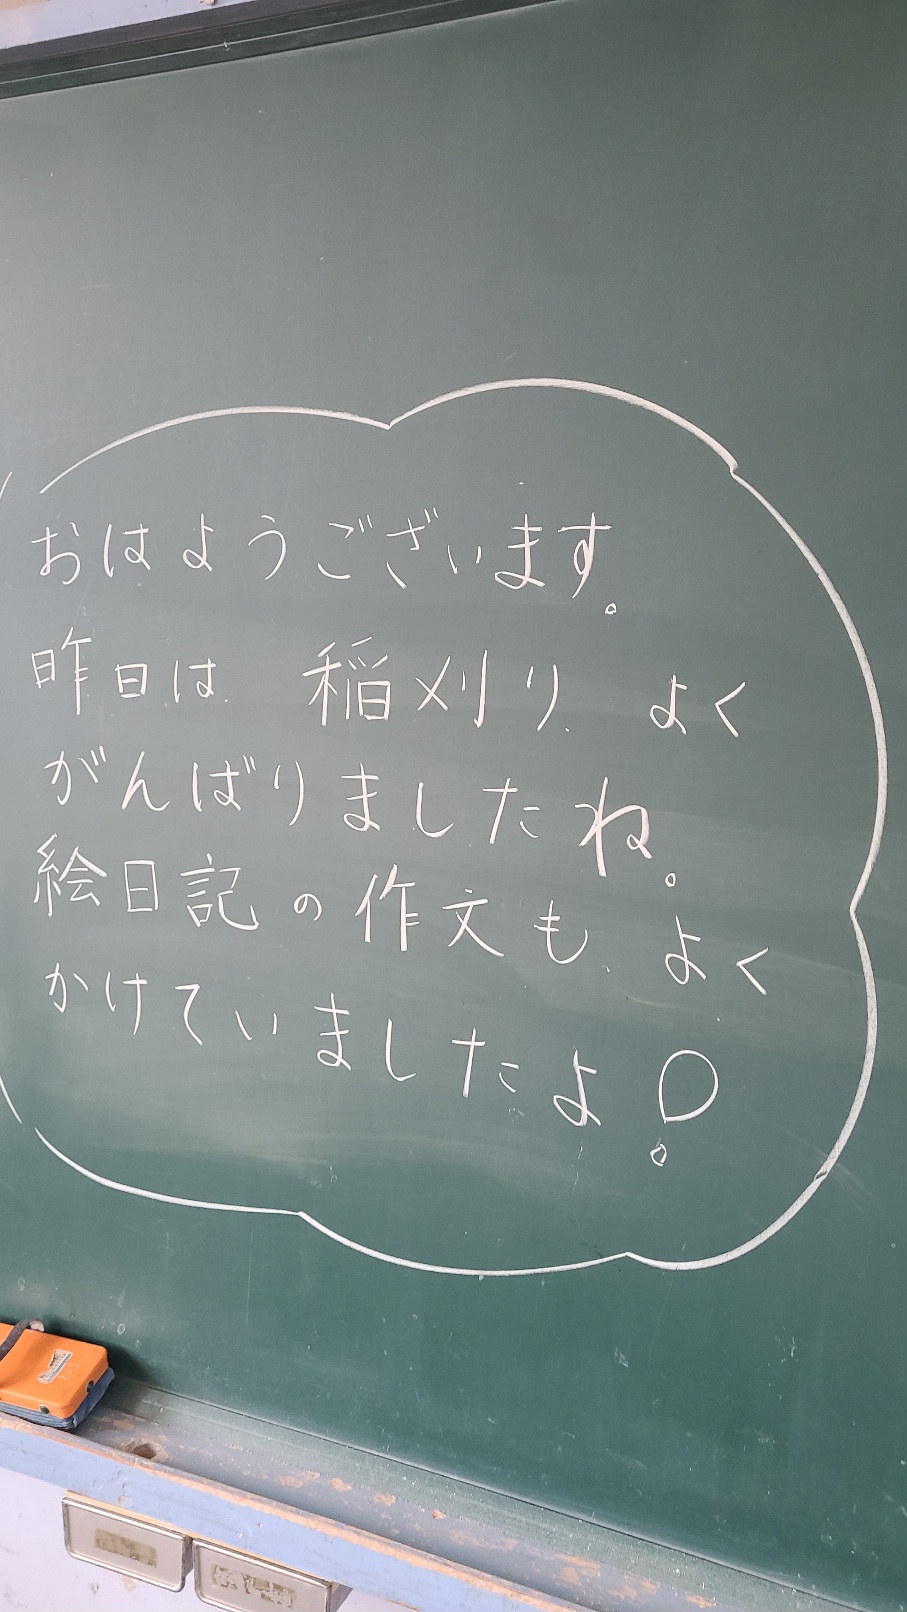 おはようございます。
昨日は 稲刈り よく
がんばりましたね。
絵日記の作文も よく
かけていましたよ!